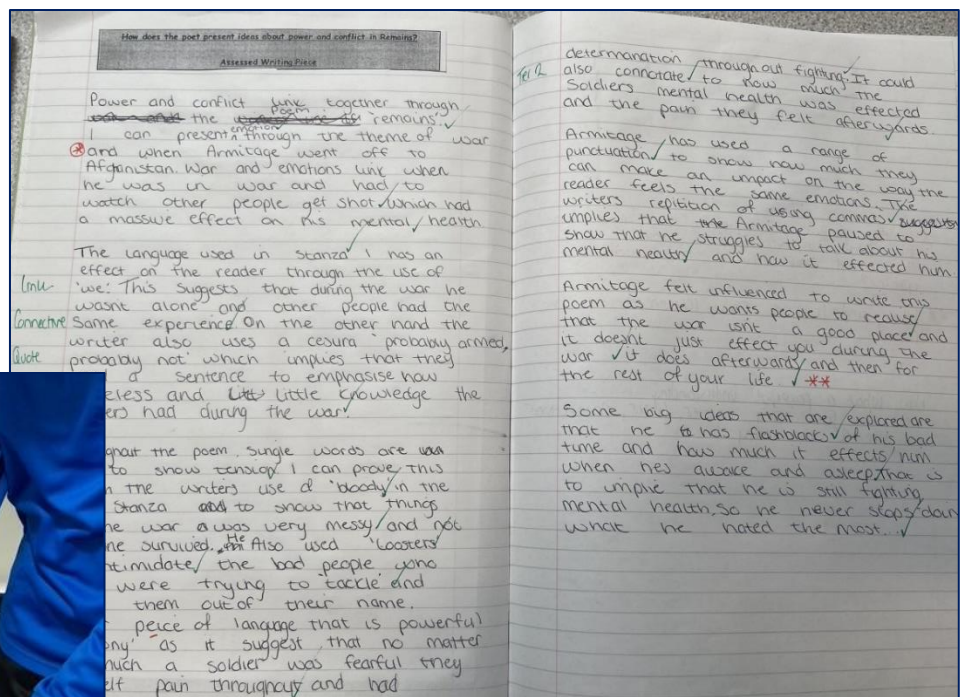 How does the poet present ideas about power and conflict in Remains?
Assessed Writing Piece
Power and conflict link together through
the poem 'remains'.
I can present emotion through the theme of war
and when Armitage went off to
Afganistan. War and emotions link when
he was in war and had to
watch other people get shot which had
a massive effect on his mental health
The language used in stanza 1 has an
effect on the reader through the use of
Link
'we'. This suggests that during the war he
wasnt alone and other people had the
Connective
same experience. On the other hand the
writer also uses a cesura 'probably armed,
Quote
probably not' which implies that they
a sentence to emphasise how
eless and little knowledge the
ers had during the war
ghout the poem, single words are
to show tension. I can prove this
the writers use of 'bloody' in the
Stanza to show that things
he war was very messy and not
ne survived. He Also used 'looters'
ntimidate the bad people who
were trying to 'tackle' and
them out of their name.
peice of language that is powerful
ony' as it suggest that no matter
much a soldier was fearful they
elt pain throughout and had
determanation throughout fighting. It could
also connotate to how much the
Soldiers mental health was effected
and the pain they felt afterwards.
Armitage has used a range of
punctuation to show how much they
can make an impact on the way the
reader feels the same emotions. The
writers repitition of using commas
implies that Armitage paused to
show that he struggles to talk about his
mental health and how it effected him
Armitage felt influenced to write this
poem as he wants people to realise
that the war isnt a good place and
it doesnt just effect you during the
war it does afterwards and then for
the rest of your life **
Some big ideas that are explored are
that he has flashblacks of his bad
time and how much it effects him
when hes awake and asleep. That is
to implie that he is still fighting
mental health, So he never stops
what he hated the most.